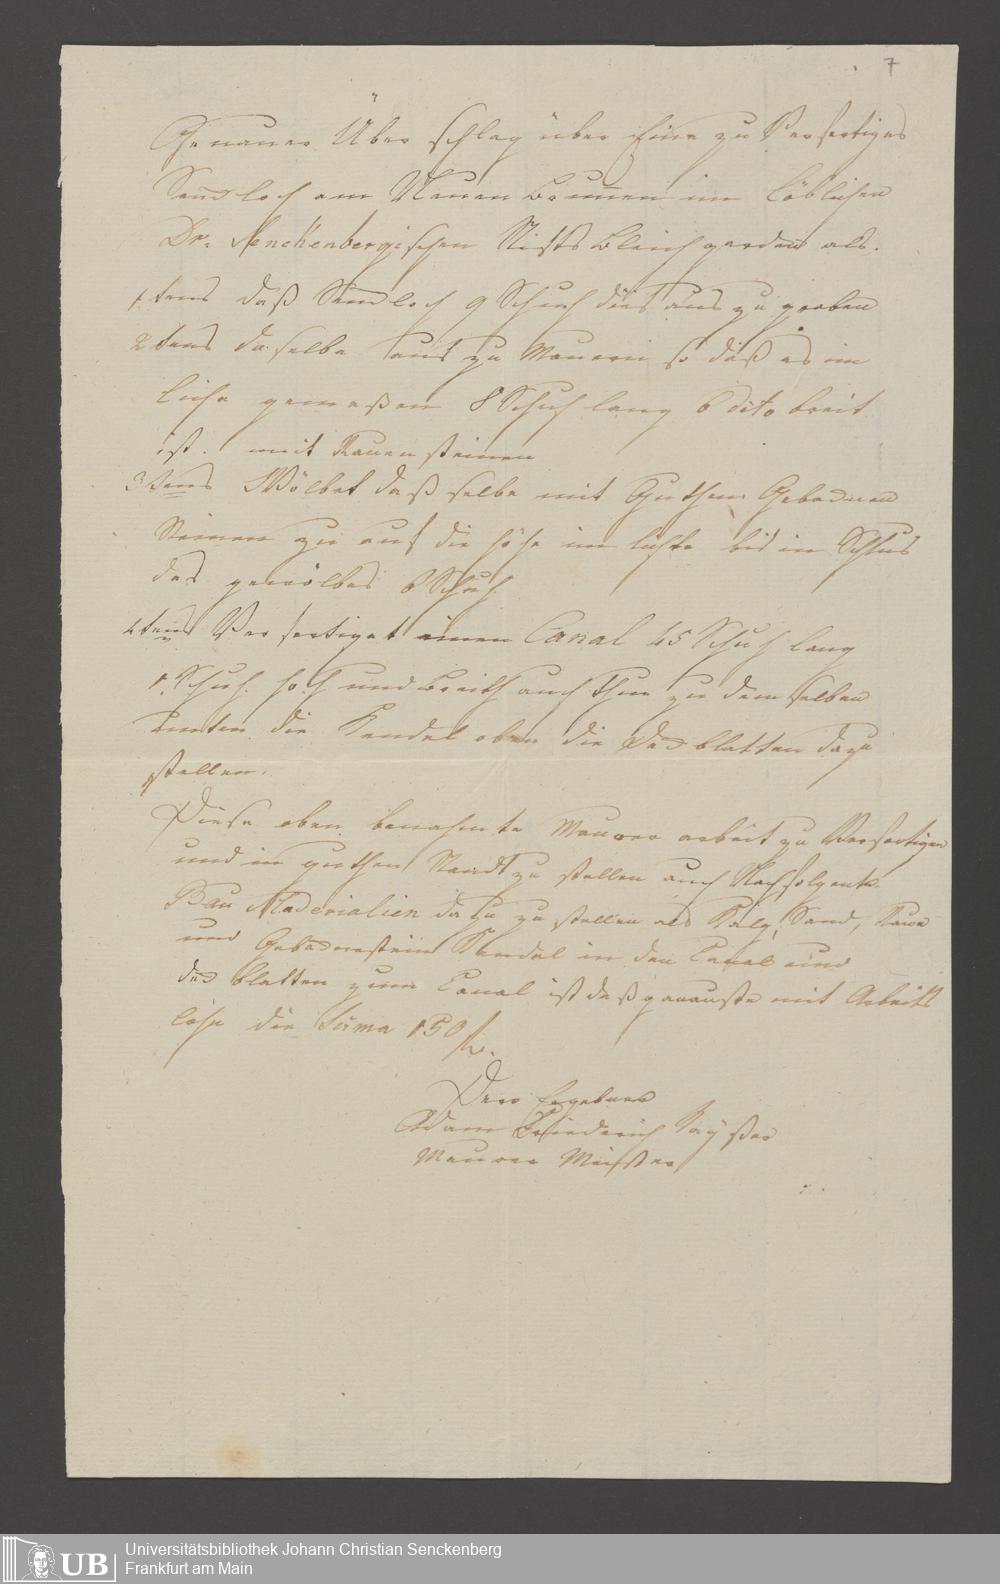 7
Genauer Über schlag über Eine zu Verfertiges
Senckloch am Neuen Brunnen im Löblichen
Dr. Senckenbergischen Stifts Bleich garden als.
1tens daß Senckloch 9 Schuh dief aus zu graben
2tens daselbe aus zu Mauern so daß es im
Lichte gemeßen 8 Schuh lang 6 dito breit
ist. mit Rauensteinen
3tens Wölbet daß selbe mit Guthen Gebacknen
Steinen zu auf die höhe im lichte bis in Schlus
des gewölbes 6 Schuh
4tens Verfertiget einen Canal 45 Schuh lang
1 Schuh hoch und Breith auch Thue zu dem selben
unten die Kendel oben die Deckblatten dazu
stellen.
Diese oben benahmte Maurer arbeit zu Verfertigen
und in guthen Standt zu stellen auch Nachfolgente
Bau Maderialien dazu zu stellen als Kalg, Sand, Raue
und Gebacknestein Kendel in den Canal und
deckblatten zum Canal ist daß genauste mit Arbeits
lohn die Suma 150 fl.
Dero Ergebner
Adam Friederich Kayßer
Maurer Meister
UB
Universitätsbibliothek Johann Christian Senckenberg
Frankfurt am Main